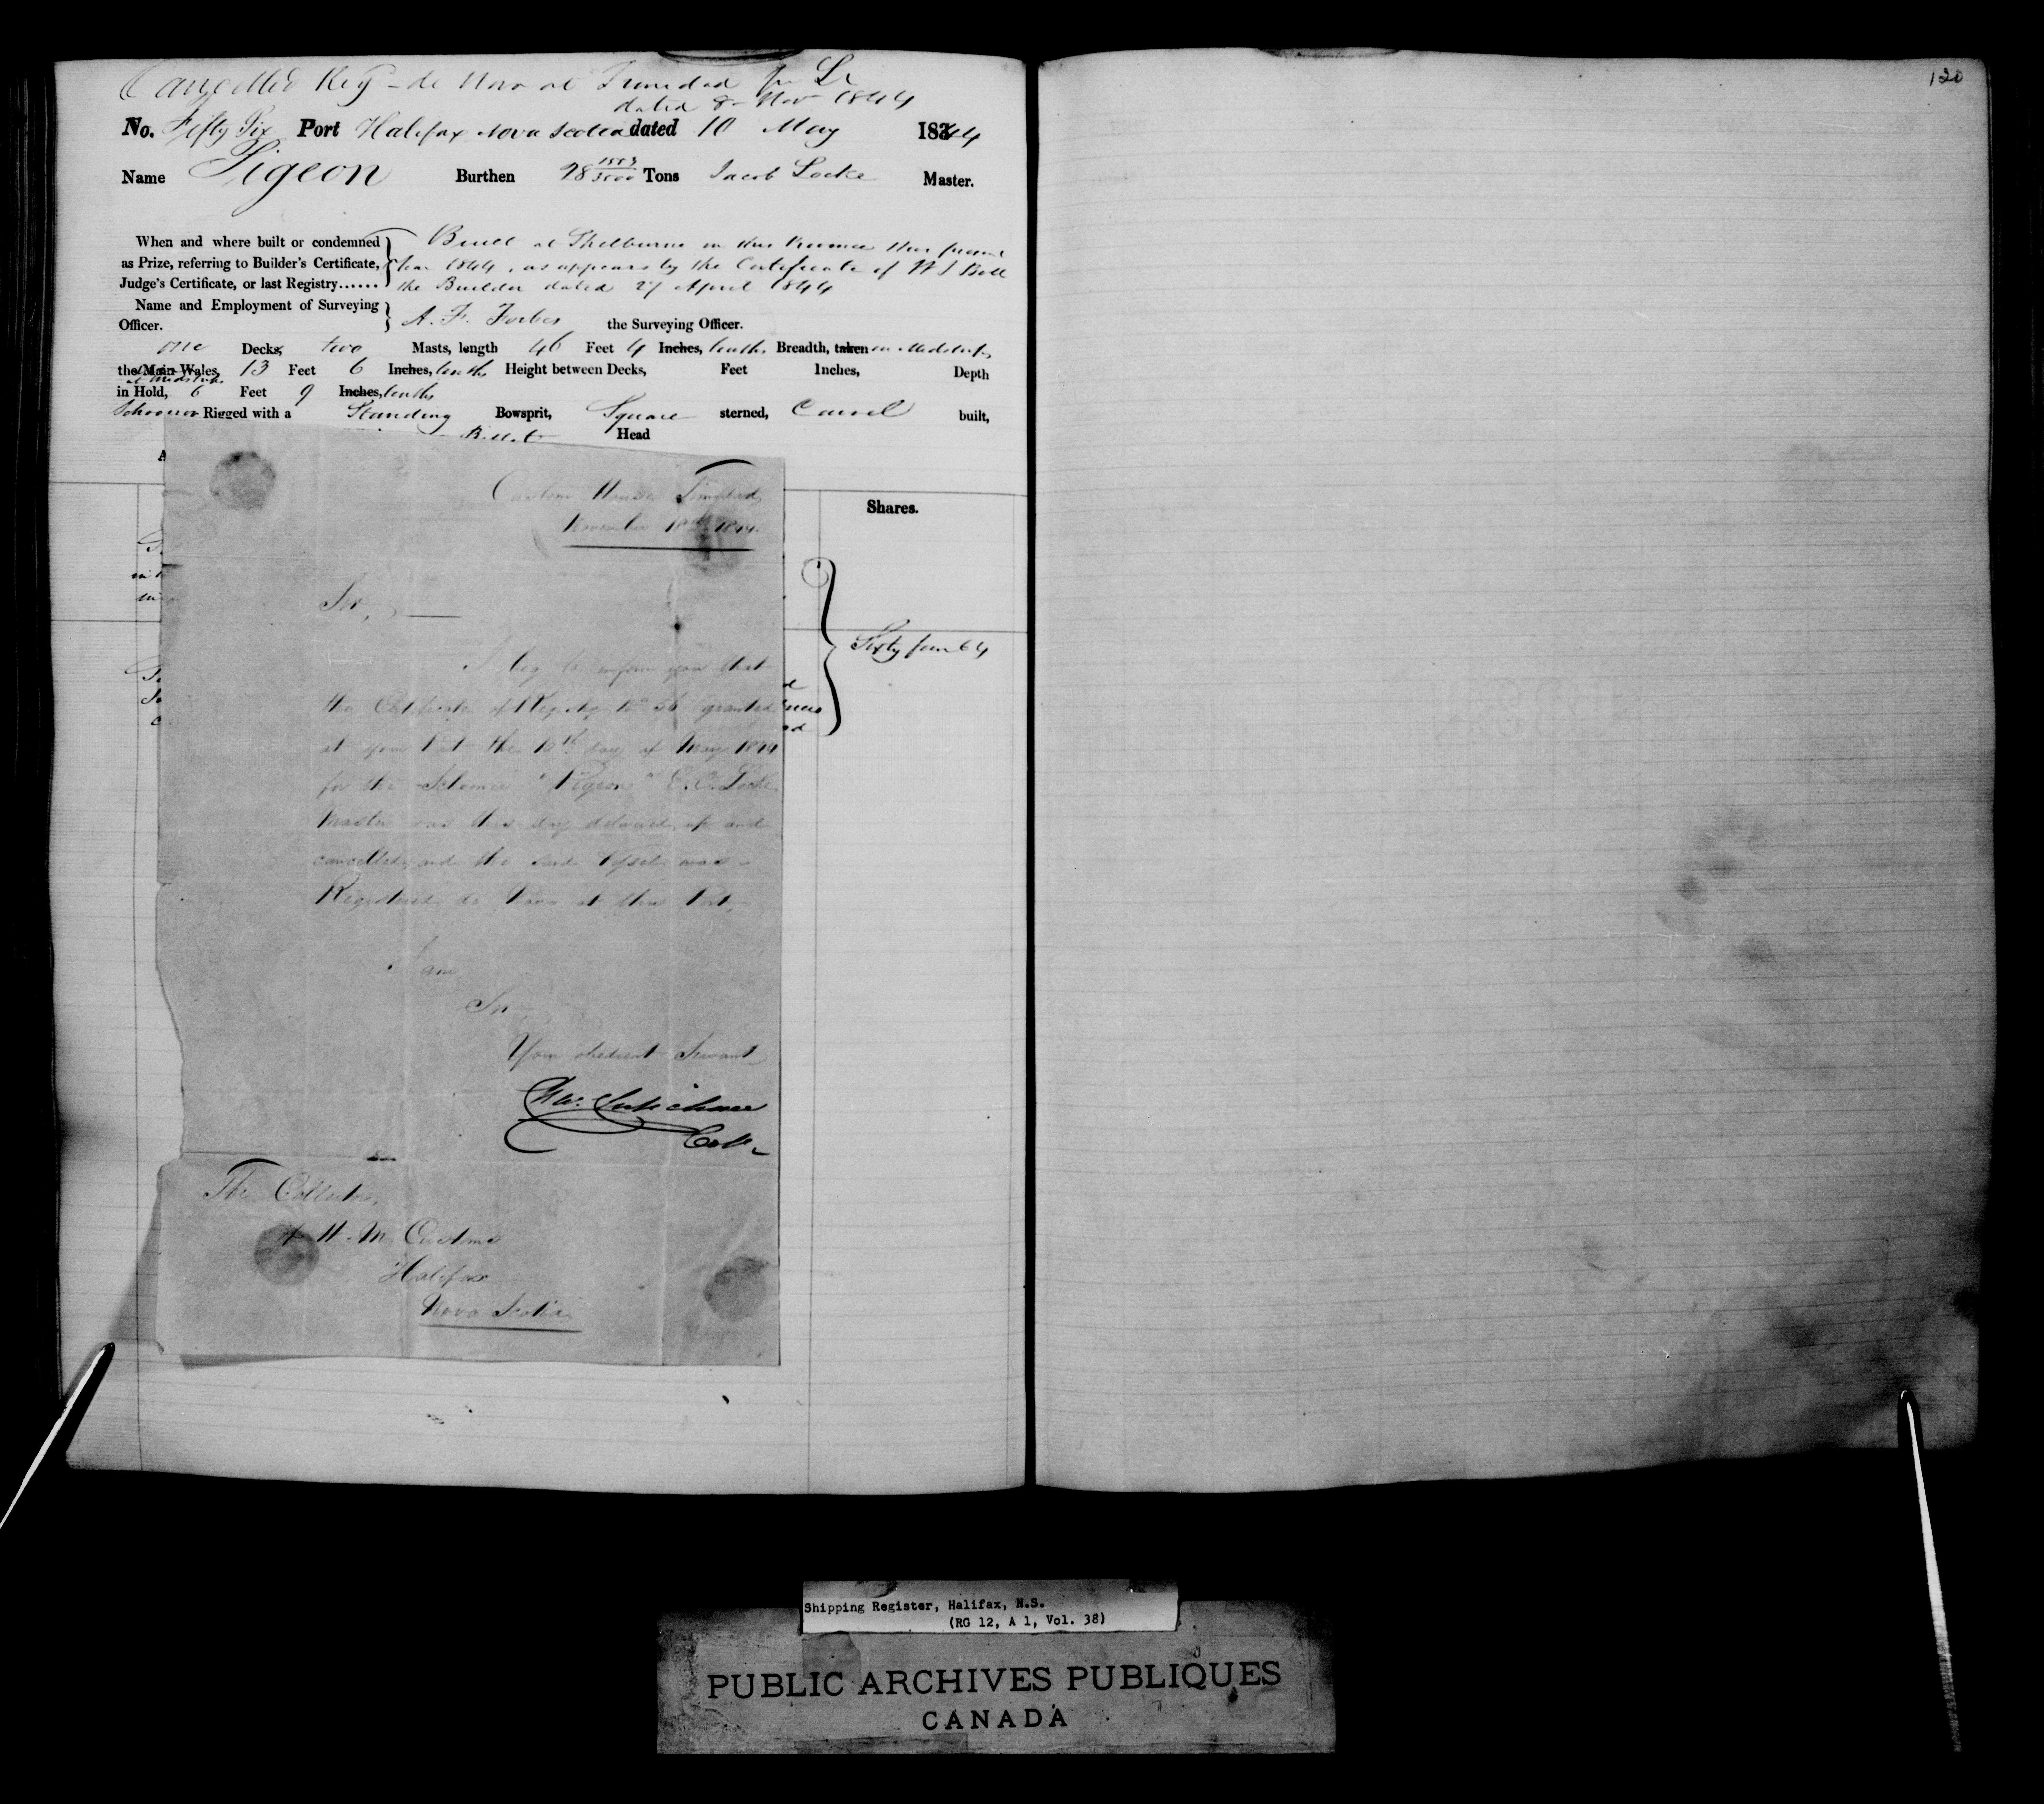 Cancelled Reg de Novo at Trinidad per Lr
dated 8 Nov 1844
No. Fifty Six Port Halifax Nova Scotia dated 10 May 1844
Name Pigeon Burthen 28 1553/3500 Tons Jacob Locke Master.
When and where built or condemned
as Prize, referring to Builder's Certificate,
Judge's Certificate, or last Registry......
Built at Shelburne in this Province this present
Year 1844, as appears by the Certificate of
the Builder dated 27 April 1844
Name and Employment of Surveying
Officer.
A. F. Forbes the Surveying Officer.
One Decks, two Masts, length 46 Feet 4 Inches, tenths Breadth, taken in Midships
the Main Wales, 13 Feet 6 Inches, tenths Height between Decks, Feet Inches, Depth
at Midships
in Hold, 6 Feet 9 Inches, tenths
Schooner Rigged with a Standing Bowsprit, Square sterned, Carvel built,
Billet Head
Shares.
Sixty four 64
Custom House Trinidad
November 18th 1844.
Sir,
I beg to inform you that
the Certificate of Registry No 56 granted
at your Port the 10th day of May 1844
for the Schooner "Pigeon" C. O. Locke
Master was this day delivered up and
cancelled, and the said Vessel was
Registered de Novo at this Port,
I am
Sir
Your obedient Servant
Coll
The Collector,
of H. M. Customs
Halifax
Nova Scotia
120
Shipping Register, Halifax, N.S.
(RG 12, A 1, Vol. 38)
PUBLIC ARCHIVES PUBLIQUES
CANADA